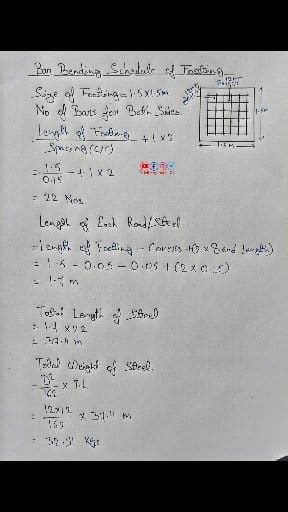 Bar Bending Schedule of Footing
Size of Footing = 1.5 x 1.5 m
No of Bars for Both Sides.
Length of Footing + 1 x 2
Spacing (C/C)
= 1.5 + 1 x 2
0.15
= 22 Nos.
Length of Each Road/Steel
= Length of Footing - Covers +(2 x Bend Length)
= 1.5 - 0.05 - 0.05 + (2 x 0.15)
= 1.7 m
Total Length of Steel
= 1.7 x 22
= 37.4 m
Total Weight of Steel.
= D² x T.L
162
= 12x12 x 37.4 m
= Kgs
12mm
1.5m
1.5 m